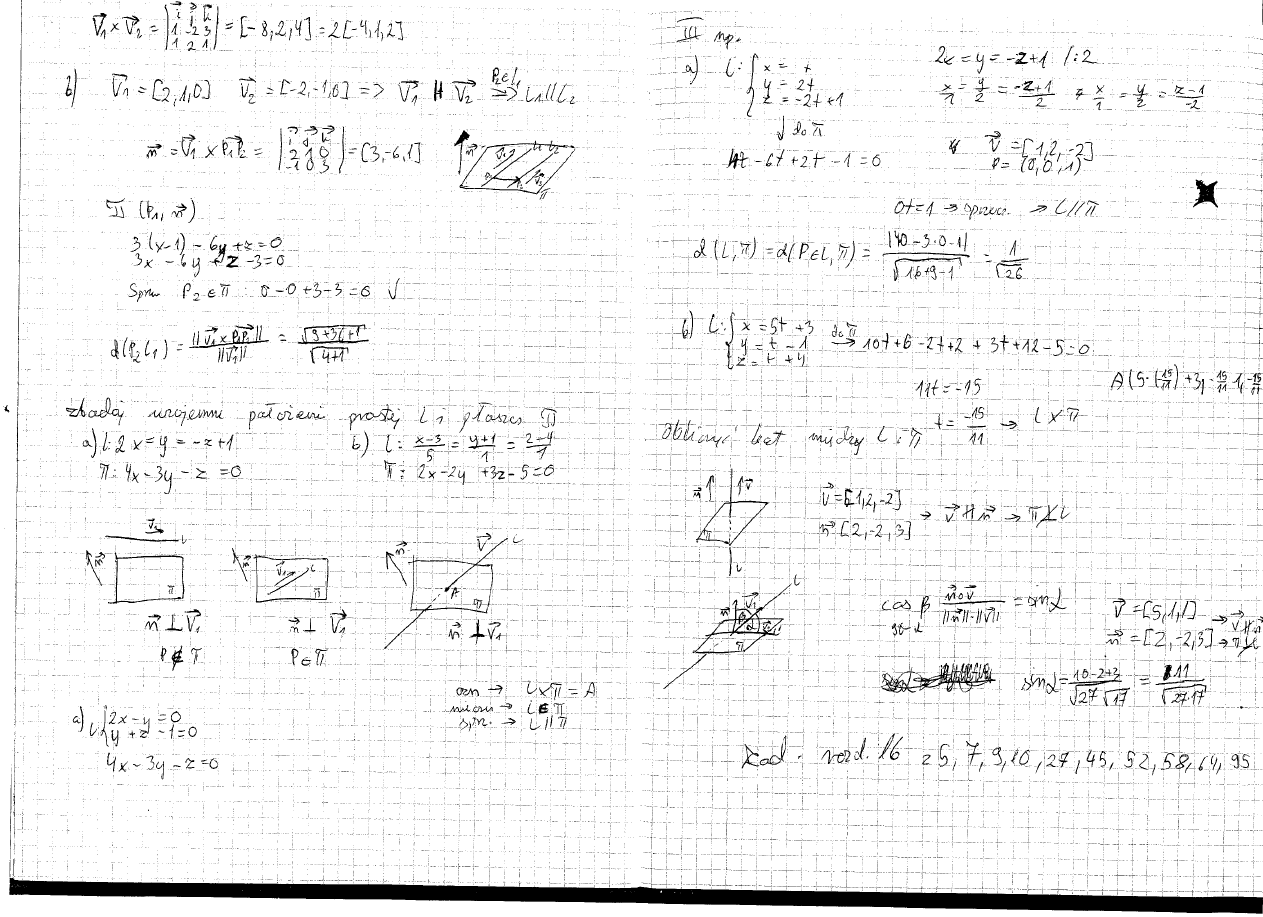 V₁ × V₂ = |i j k; 1 -2 3; 1 2 1| = [-8, 2, 4] = 2[-4, 1, 2]
b) V₁ = [2, 1, 0] V₂ = [-2, -1, 0] => V₁ ∥ V₂ P₂∈l₁ => L₁ ∥ L₂
n = V₁ × P₁P₂ = |i j k; 2 1 0; -1 0 3| = [3, -6, 1]
π (P₁, n)
3(x-1) - 6y + z = 0
3x - 6y + z - 3 = 0
Spraw P₂ ∈ π : 0 - 0 + 3 - 3 = 0 √
d(P₂ L₁) = ||V₁ × P₁P₂|| / ||V₁|| = √(9+36+1) / √(4+1)
zbadaj wzajemne położenie prostej L i płaszcz π
a) l: 2x = y = -z+1 b) L: (x-3)/5 = (y+1)/1 = (z-4)/1
π: 4x - 3y - z = 0 π: 2x - 2y + 3z - 5 = 0
V₁ L n π
n V₁ L π
n V L A π
n ⊥ V₁ n ⊥ V₁ n ⊥ V₁
P ∉ π P ∈ π
ozn → L × π = A
nieozn → L ∈ π
sprz. → L ∥ π
a) L: {2x - y = 0
y + z - 1 = 0
4x - 3y - z = 0
III np.
a) L: {x = t
y = 2t
z = -2t + 1
↓ do π
4t - 6t + 2t - 1 = 0
2x = y = -z+1 /:2
x/1 = y/2 = (-z+1)/2 x/1 = y/2 = (z-1)/-2
V = [1, 2, -2]
P = (0, 0, 1)
0t = 1 → sprzecz. → L ∥ π
d(L, π) = d(P∈L, π) = |4·0 - 3·0 - 1| / √(16+9-1) = 1/√26
b) L: {x = 5t + 3
y = t - 1
z = t + 4
do π → 10t + 6 - 2t + 2 + 3t + 12 - 5 = 0
11t = -15
t = -15/11 → L × π
A (5·(-15/11) + 3, -15/11 - 1, -15/11
Obliczyć kąt między L i π
n V π L
V = [1, 2, -2]
n [2, -2, 3] → V ∦ n → π ⊥̸ L
n V₁ L β α π
cos β n∘V / ||n||·||V|| = sin α
90-α
V = [5, 1, 1]
n = [2, -2, 3] → V ∦ n → π ⊥̸ L
sin α = (10-2+3) / √27 √17 = 11 / √27·17
Zad. rozd. 16 z 5, 7, 9, 10, 27, 45, 52, 58, 64, 95